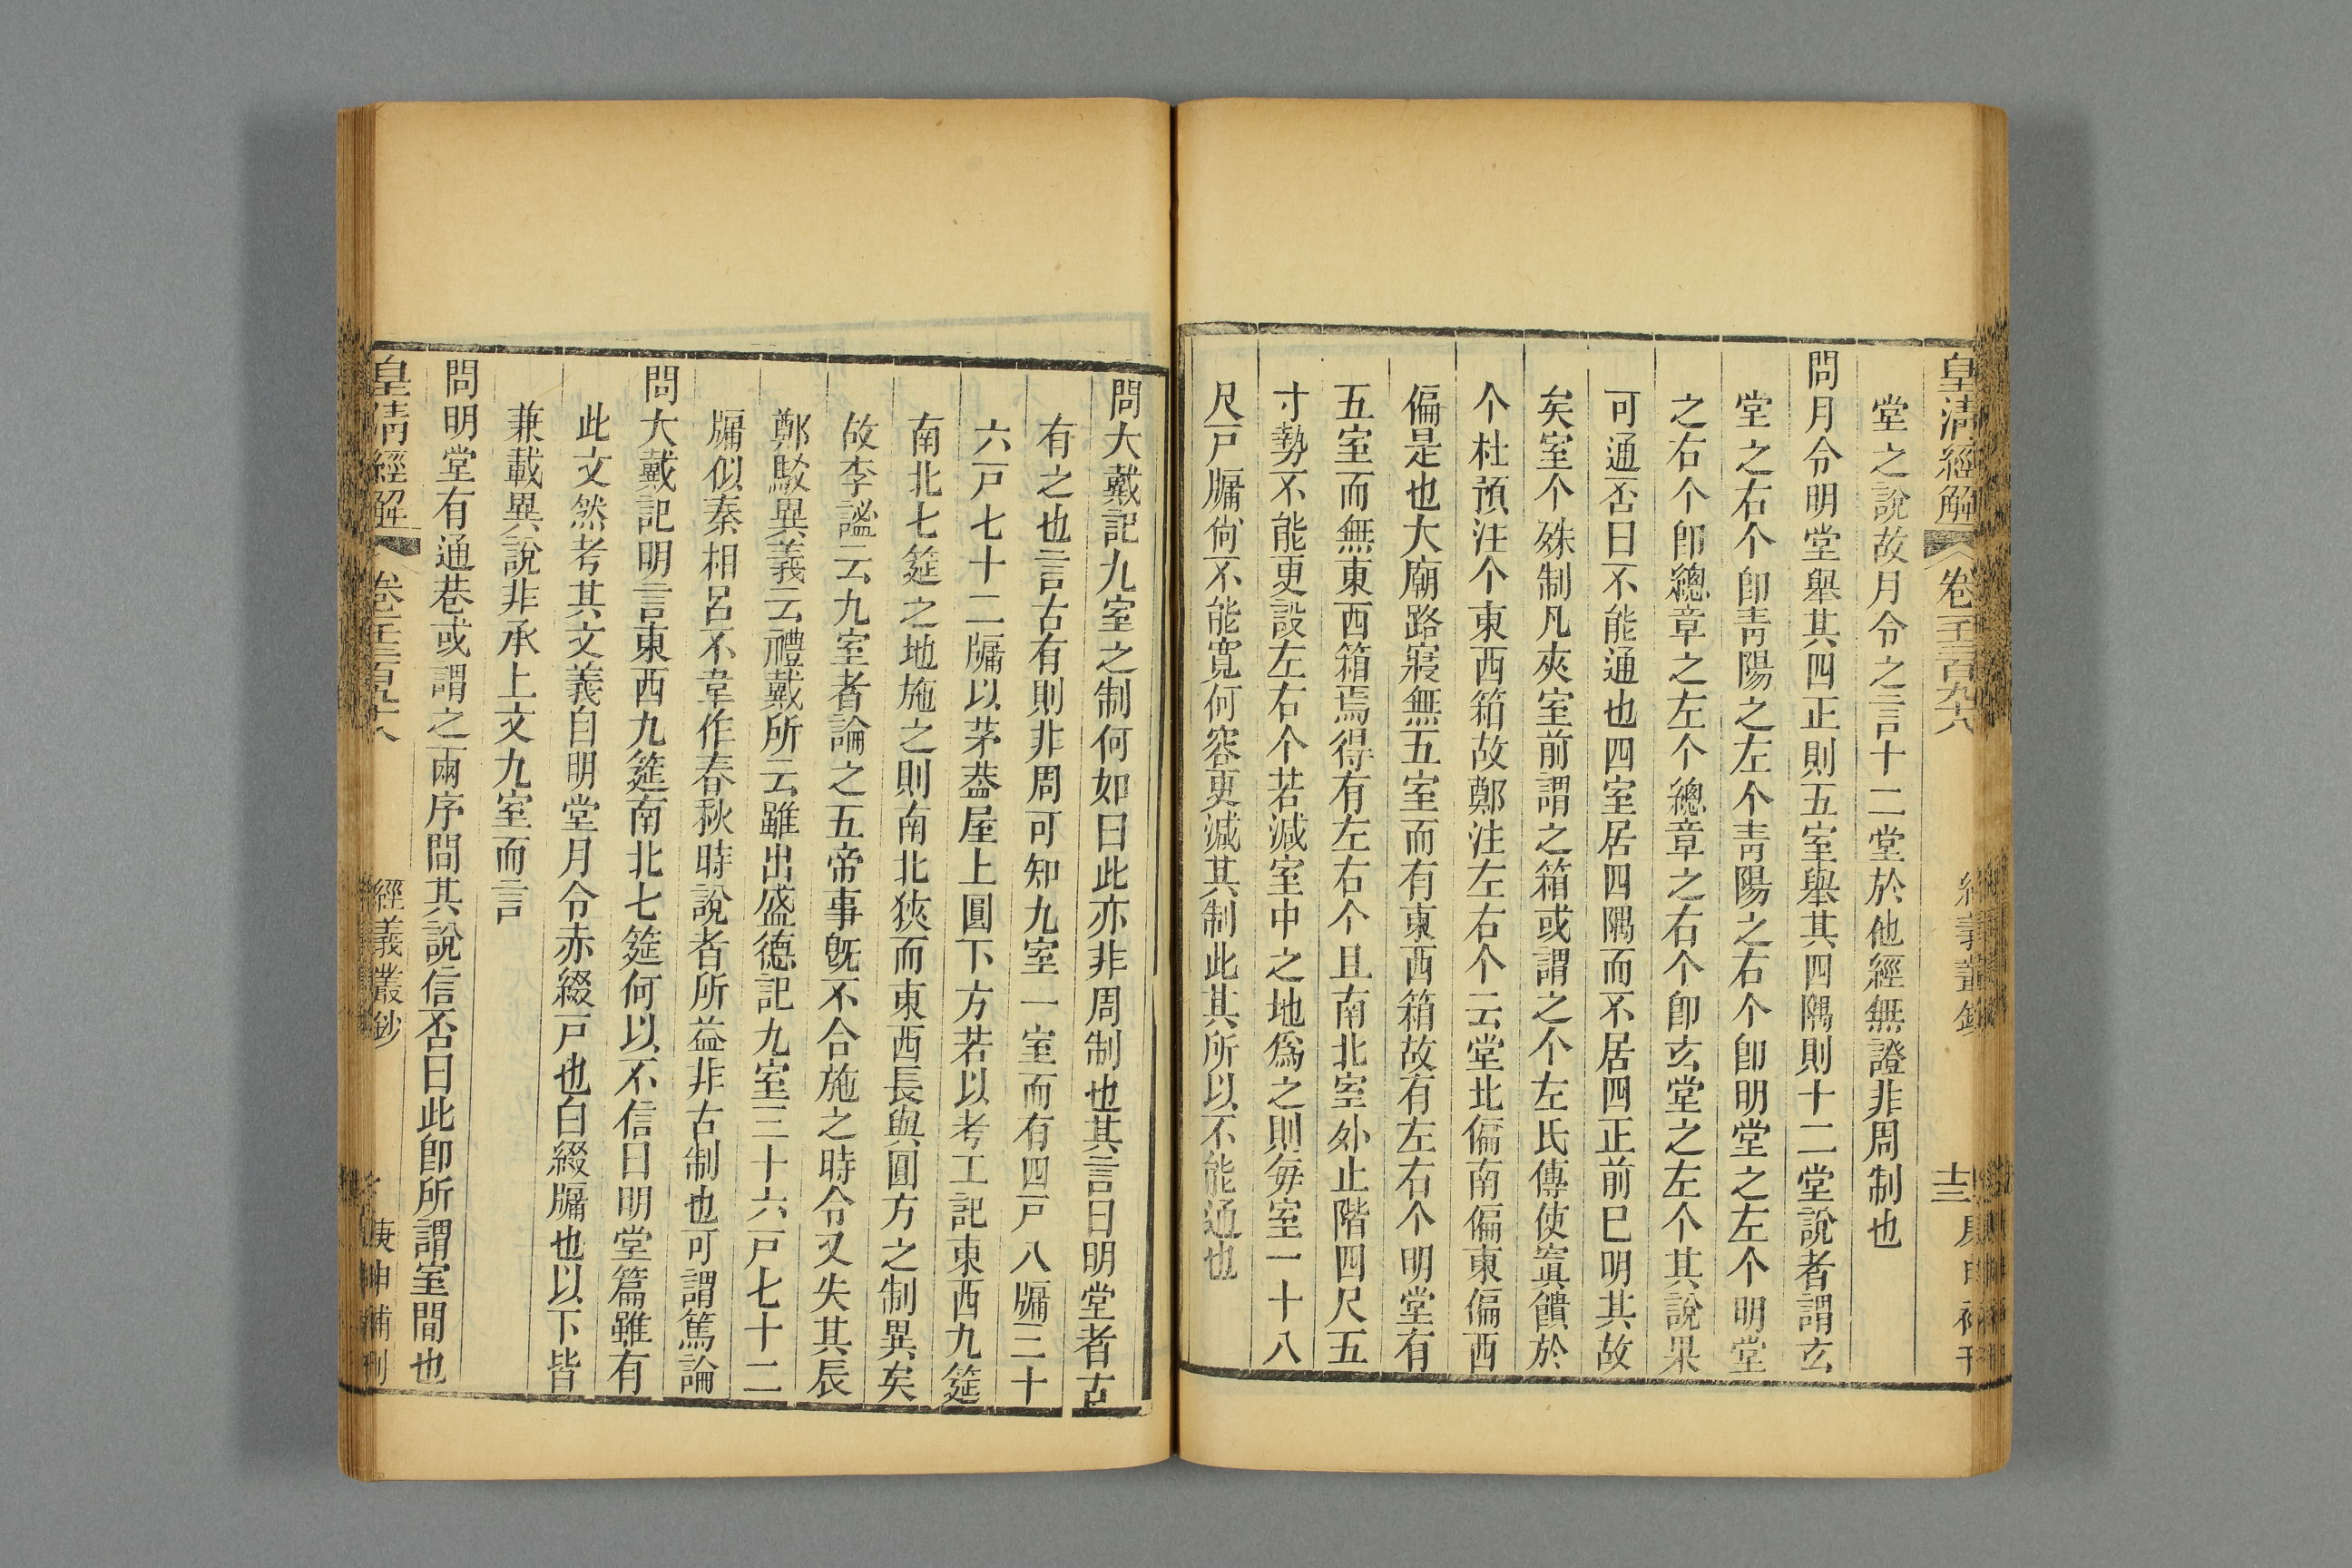 皇清經解
卷一千三百九十八
十三
堂之說故月令之言十二堂於他經無證非周制也
問月令明堂舉其四正則五室舉其四隅則十二堂說者謂玄
堂之右个卽靑陽之左个靑陽之右个卽明堂之左个明堂
之右个卽總章之左个總章之右个卽玄堂之左个其說果
可通否曰不能通也四室居四隅而不居四正前巳明其故
矣室个殊制凡夾室前謂之箱或謂之个左氏傳使寘饋於
个杜預注个東西箱故鄭注左右个云堂北偏南偏東偏西
偏是也大廟路寢無五室而有東西箱故有左右个明堂有
五室而無東西箱焉得有左右个且南北室外止階四尺五
寸勢不能更設左右个若減室中之地爲之則每室一十八
尺戸牖尙不能寬何容更減其制此其所以不能通也
問大戴記九室之制何如曰此亦非周制也其言曰明堂者古
有之也言古有則非周可知九室一室而有四戸八牖三十
六戸七十二牖以茅葢屋上圓下方若以考工記東西九筵
南北七筵之地施之則南北狹而東西長與圓方之制異矣
故李謐云九室者論之五帝事旣不合施之時令又失其辰
鄭駁異義云禮戴所云雖出盛德記九室三十六戸七十二
牖似秦相呂不韋作春秋時說者所益非古制也可謂篤論
問大戴記明言東西九筵南北七筵何以不信曰明堂篇雖有
此文然考其文義自明堂月令赤綴戸也白綴牖也以下皆
兼載異說非承上文九室而言
問明堂有通巷或謂之兩序間其說信否曰此卽所謂室間也
皇清經解
經義叢鈔
庚申補刊